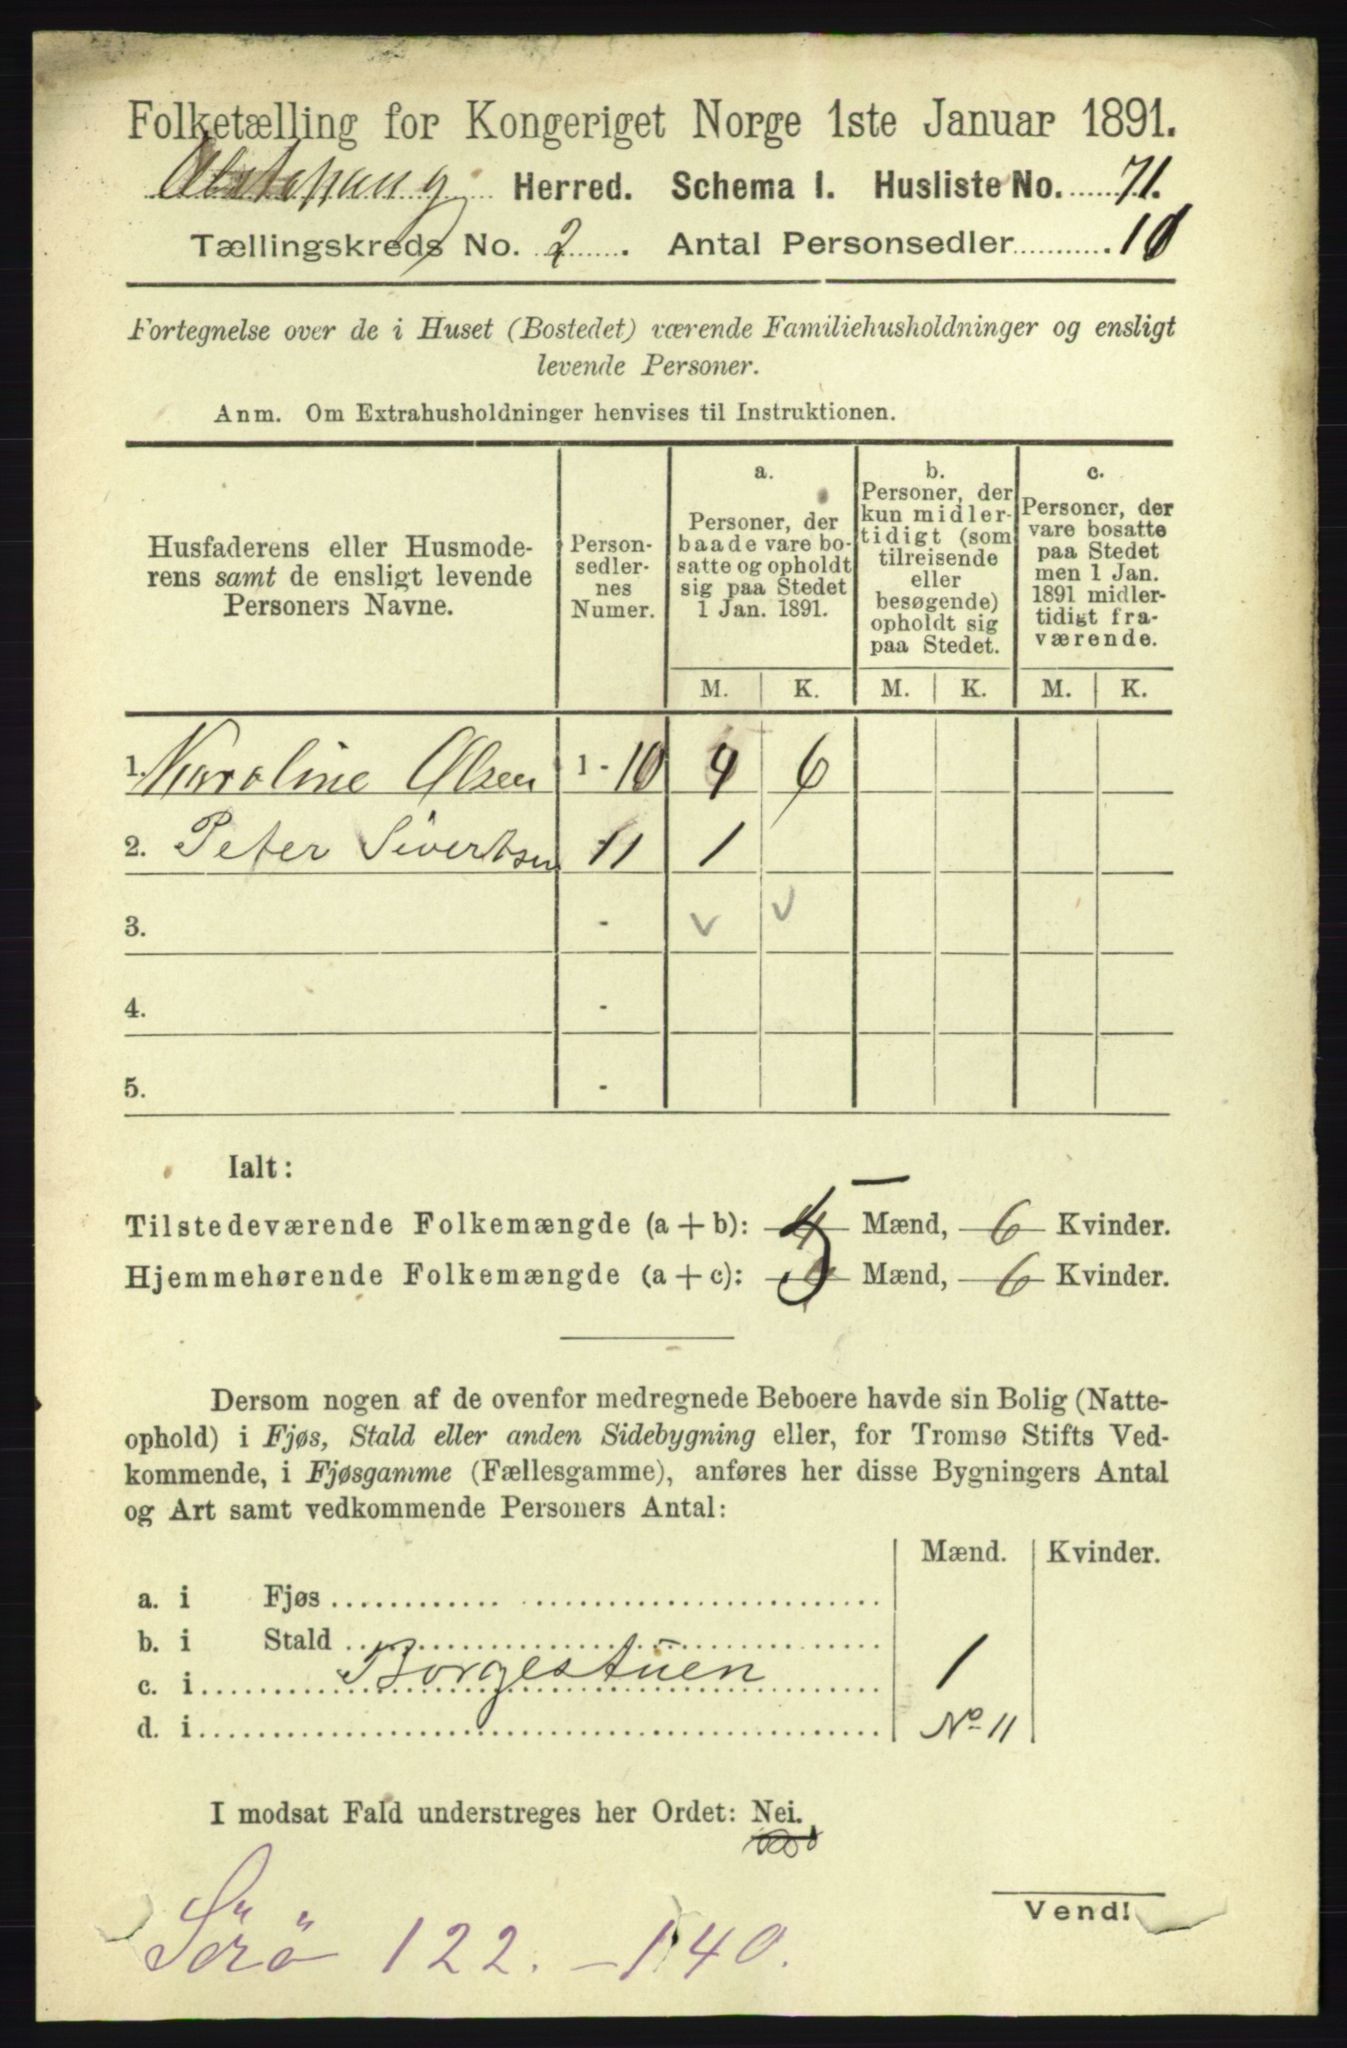 Folketælling for Kongeriget Norge 1ste Januar 1891.
Alstahaug Herred. Schema I. Husliste No. 71.
Tællingskreds No. 2. Antal Personsedler
Fortegnelse over de i Huset (Bostedet) værende Familiehusholdninger og ensligt
levende Personer.
Anm. Om Extrahusholdninger henvises til Instruktionen.
Husfaderens eller Husmode-
rens samt de ensligt levende
Personers Navne.
Person-
sedler-
nes
Numer.
a.
Personer, der
baade vare bo-
satte og opholdt
sig paa Stedet
1 Jan. 1891.
b.
Personer, der
kun midler-
tidigt (som
tilreisende
eller
besøgende)
opholdt sig
paa Stedet.
c.
Personer, der
vare bosatte
paa Stedet
men 1 Jan.
1891 midler-
tidigt fra-
værende.
M. K. M. K. M. K.
1. Karoline Olsen 1 - 10 4 6
2. Peter Sivertsen 11 1
3. - v v
4. -
5. -
Ialt:
Tilstedeværende Folkemængde (a + b): 5 Mænd, 6 Kvinder.
Hjemmehørende Folkemængde (a + c): 5 Mænd, 6 Kvinder.
Dersom nogen af de ovenfor medregnede Beboere havde sin Bolig (Natte-
ophold) i Fjøs, Stald eller anden Sidebygning eller, for Tromsø Stifts Ved-
kommende, i Fjøsgamme (Fællesgamme), anføres her disse Bygningers Antal
og Art samt vedkommende Personers Antal:
Mænd. Kvinder.
a. i Fjøs
b. i Stald
c. i Borgestuen 1
d. i No 11
I modsat Fald understreges her Ordet: Nei.
Vend!
Sörö 122. - 140.